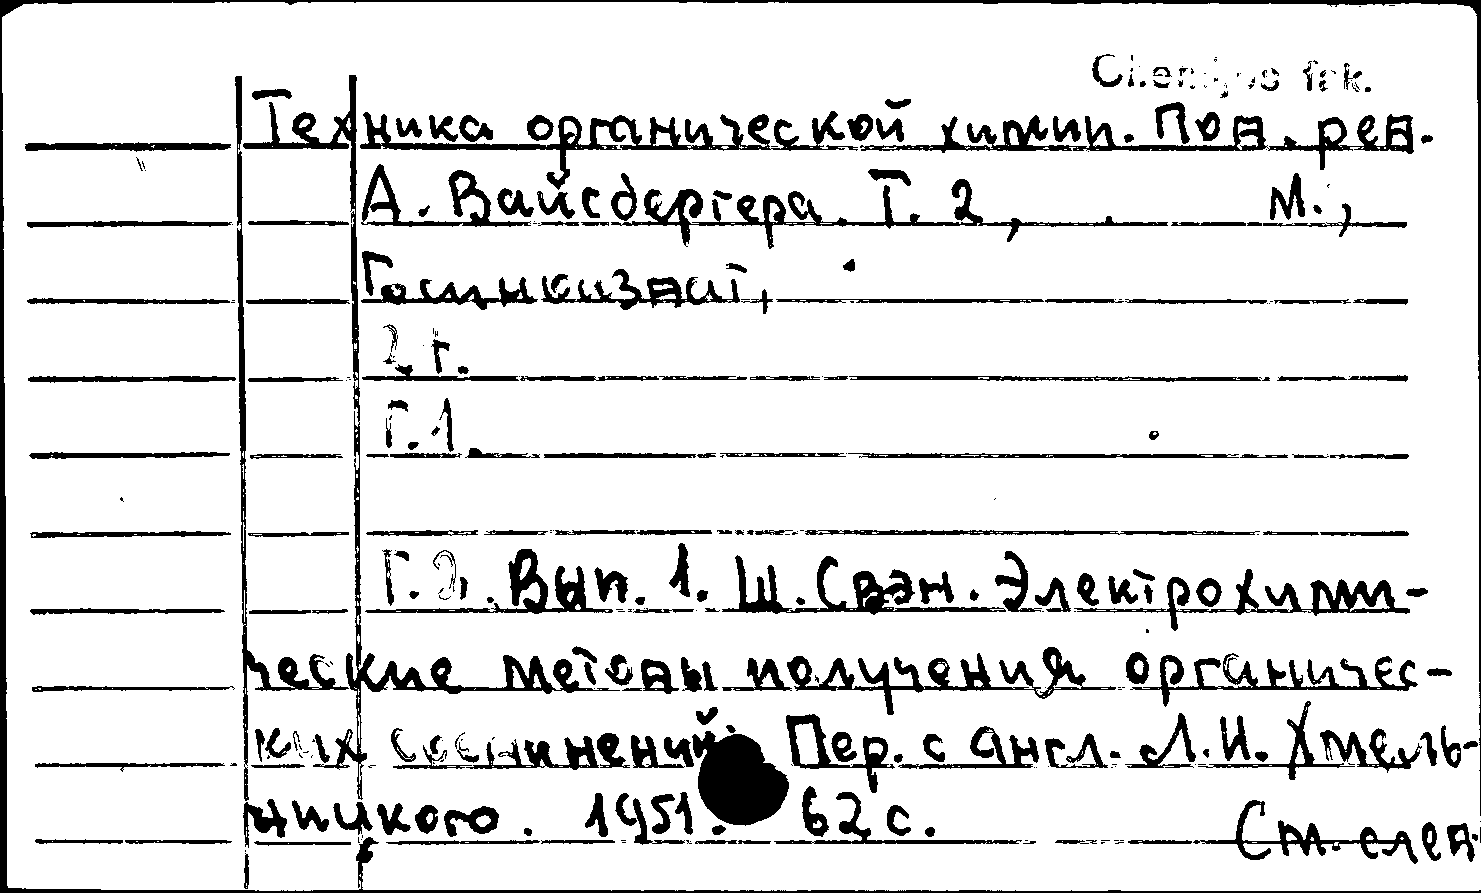 Chemijos fak.
Техника органической химии. Под. ред.
А. Вайсбергера. Т. 2, М.,
Госинкиздат,
2 т.
Т.1.
Т.2. Вып. 1. Ш. Свэн. Электрохими-
ческие методы получения органичес-
ких соединений. Пер. с англ. Л.И. Хмель-
ницкого. 1951. 62 с.
См. след.